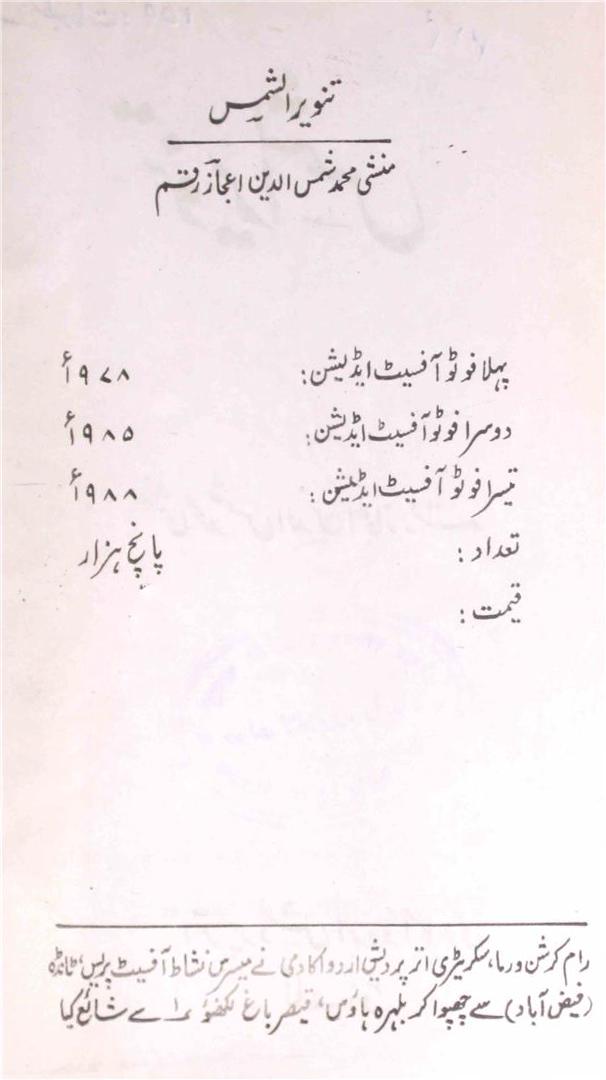 تنویر الشمس
منشی محمد شمس الدین اعجاز رقم
پہلا فوٹو آفسیٹ ایڈیشن: ۱۹۷۸ء
دوسرا فوٹو آفسیٹ ایڈیشن: ۱۹۸۵ء
تیسرا فوٹو آفسیٹ ایڈیشن: ۱۹۸۸ء
تعداد: پانچ ہزار
قیمت:
رام کرشن ورما، سکریٹری اتر پردیش اردو اکادمی نے میسرس نشاط آفسیٹ پریس، ٹانڈہ
(فیض آباد) سے چھپوا کر بلہرہ ہاؤس، قیصر باغ لکھنؤ سے شائع کیا